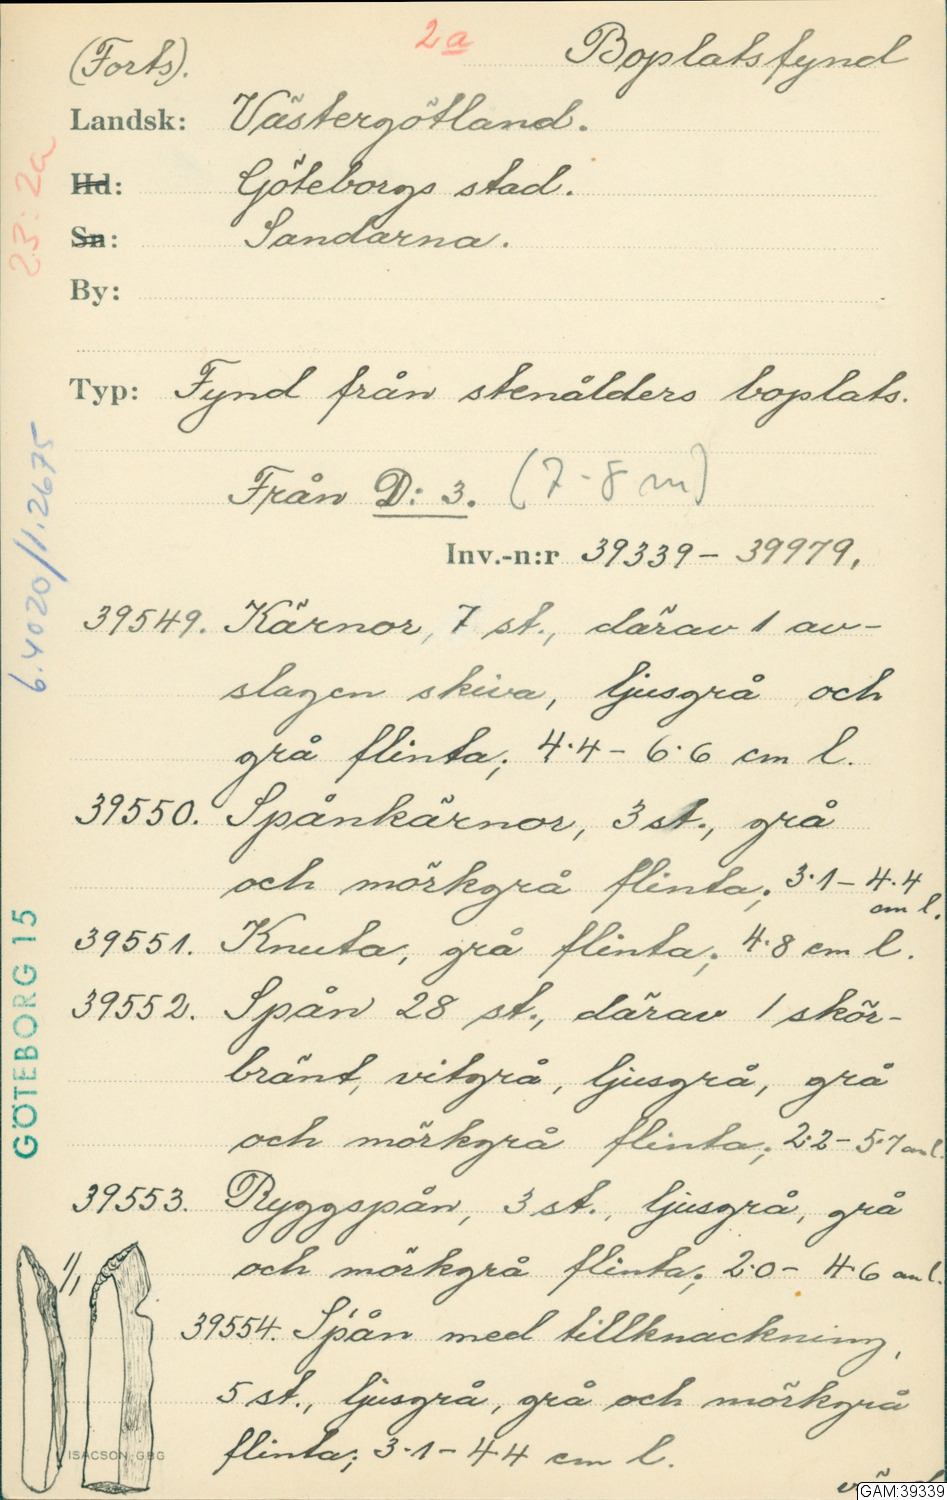 2a
(Forts). Boplatsfynd
Landsk: Västergötland.
Hd: Göteborgs stad.
Sn: Sandarna.
By:
23:2a
Typ: Fynd från stenålders boplats.
Från D: 3. (7-8 m)
Inv.-n:r 39339 - 39979.
6.4020/1.2675
39549. Kärnor, 7 st., därav 1 av-
slagen skiva, ljusgrå och
grå flinta; 4.4 - 6.6 cm l.
39550. Spånkärnor, 3 st., grå
och mörkgrå flinta; 3.1 - 4.4
cm l.
39551. Knuta, grå flinta; 4.8 cm l.
39552. Spån 28 st., därav 1 skör-
bränt, vitgrå, ljusgrå, grå
och mörkgrå flinta; 2.2 - 5.7 cm l.
GÖTEBORG 15
39553. Ryggspån, 3 st., ljusgrå, grå
och mörkgrå flinta; 2.0 - 4.6 cm l.
1/1
39554. Spån med tillknackning,
5 st., ljusgrå, grå och mörkgrå
flinta; 3.1 - 4.4 cm l.
ISACSON, GBG
GAM:39339